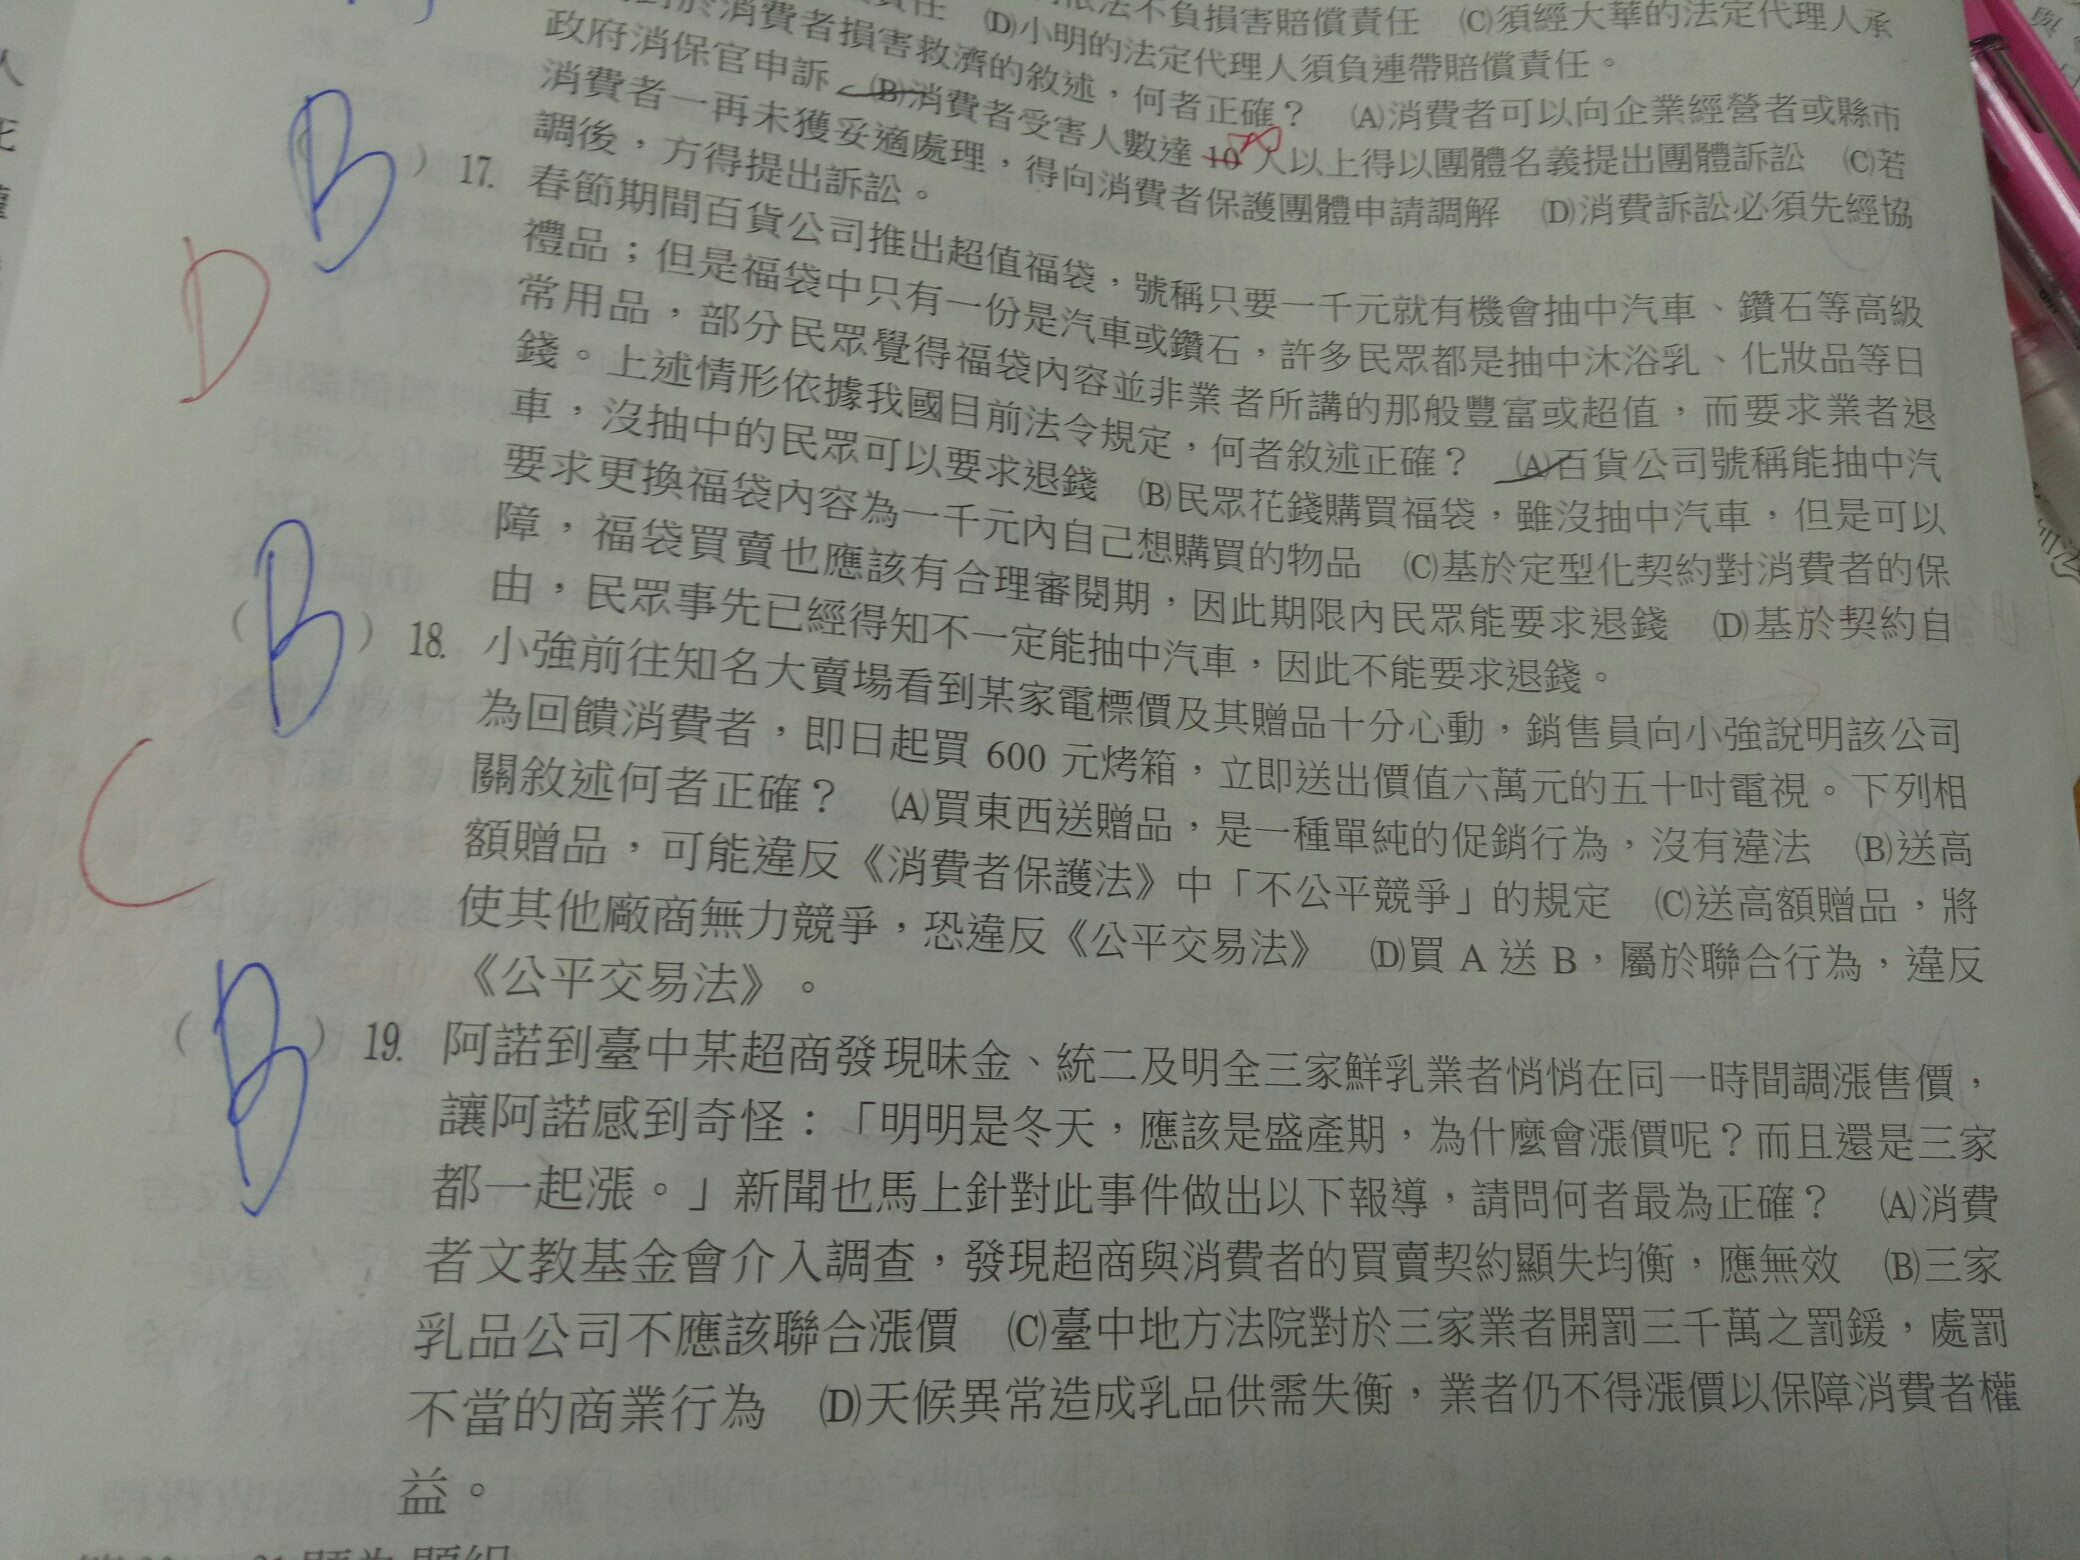 依法不負損害賠償責任 (C)須經大華的法定代理人承
責任 (D)小明的法定代理人須負連帶賠償責任。
對於消費者損害救濟的敘述，何者正確？ (A)消費者可以向企業經營者或縣市
政府消保官申訴 (B)消費者受害人數達 10 人以上得以團體名義提出團體訴訟 (C)若
20
消費者一再未獲妥適處理，得向消費者保護團體申請調解 (D)消費訴訟必須先經協
調後，方得提出訴訟。
B ) 17. 春節期間百貨公司推出超值福袋，號稱只要一千元就有機會抽中汽車、鑽石等高級
D
禮品；但是福袋中只有一份是汽車或鑽石，許多民眾都是抽中沐浴乳、化妝品等日
常用品，部分民眾覺得福袋內容並非業者所講的那般豐富或超值，而要求業者退
錢。上述情形依據我國目前法令規定，何者敘述正確？ (A)百貨公司號稱能抽中汽
車，沒抽中的民眾可以要求退錢 (B)民眾花錢購買福袋，雖沒抽中汽車，但是可以
要求更換福袋內容為一千元內自己想購買的物品 (C)基於定型化契約對消費者的保
障，福袋買賣也應該有合理審閱期，因此期限內民眾能要求退錢 (D)基於契約自
由，民眾事先已經得知不一定能抽中汽車，因此不能要求退錢。
( B ) 18. 小強前往知名大賣場看到某家電標價及其贈品十分心動，銷售員向小強說明該公司
C
為回饋消費者，即日起買 600 元烤箱，立即送出價值六萬元的五十吋電視。下列相
關敘述何者正確？ (A)買東西送贈品，是一種單純的促銷行為，沒有違法 (B)送高
額贈品，可能違反《消費者保護法》中「不公平競爭」的規定 (C)送高額贈品，將
使其他廠商無力競爭，恐違反《公平交易法》 (D)買 A 送 B，屬於聯合行為，違反
《公平交易法》。
( B ) 19. 阿諾到臺中某超商發現昧金、統二及明全三家鮮乳業者悄悄在同一時間調漲售價，
讓阿諾感到奇怪：「明明是冬天，應該是盛產期，為什麼會漲價呢？而且還是三家
都一起漲。」新聞也馬上針對此事件做出以下報導，請問何者最為正確？ (A)消費
者文教基金會介入調查，發現超商與消費者的買賣契約顯失均衡，應無效 (B)三家
乳品公司不應該聯合漲價 (C)臺中地方法院對於三家業者開罰三千萬之罰鍰，處罰
不當的商業行為 (D)天候異常造成乳品供需失衡，業者仍不得漲價以保障消費者權
益。